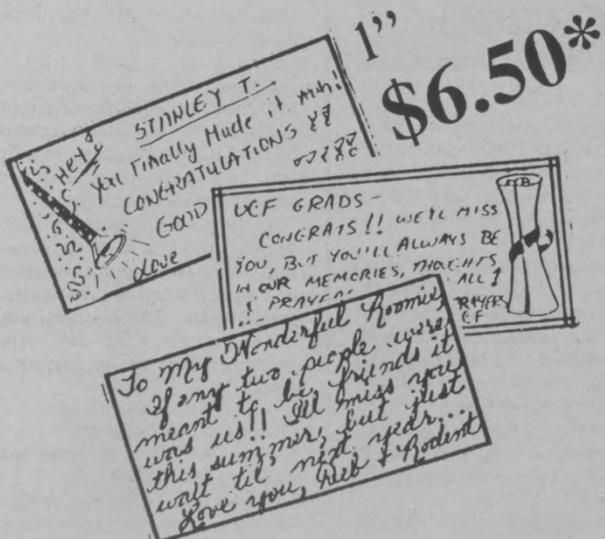 1"
$6.50*
HEY!
STANLEY T.
You Finally Made it
CONGRATULATIONS !!
GOOD
Love
UCF GRADS -
CONGRATS!! WE'LL MISS
YOU, BUT YOU'LL ALWAYS BE
IN OUR MEMORIES, THOUGHTS
PRAYERS ALL
To My Wonderful Roomie,
If any two people were
meant to be friends it
was us!! I'll miss you
this summer, but just
wait til next year...
Love you, Deb & Rodent